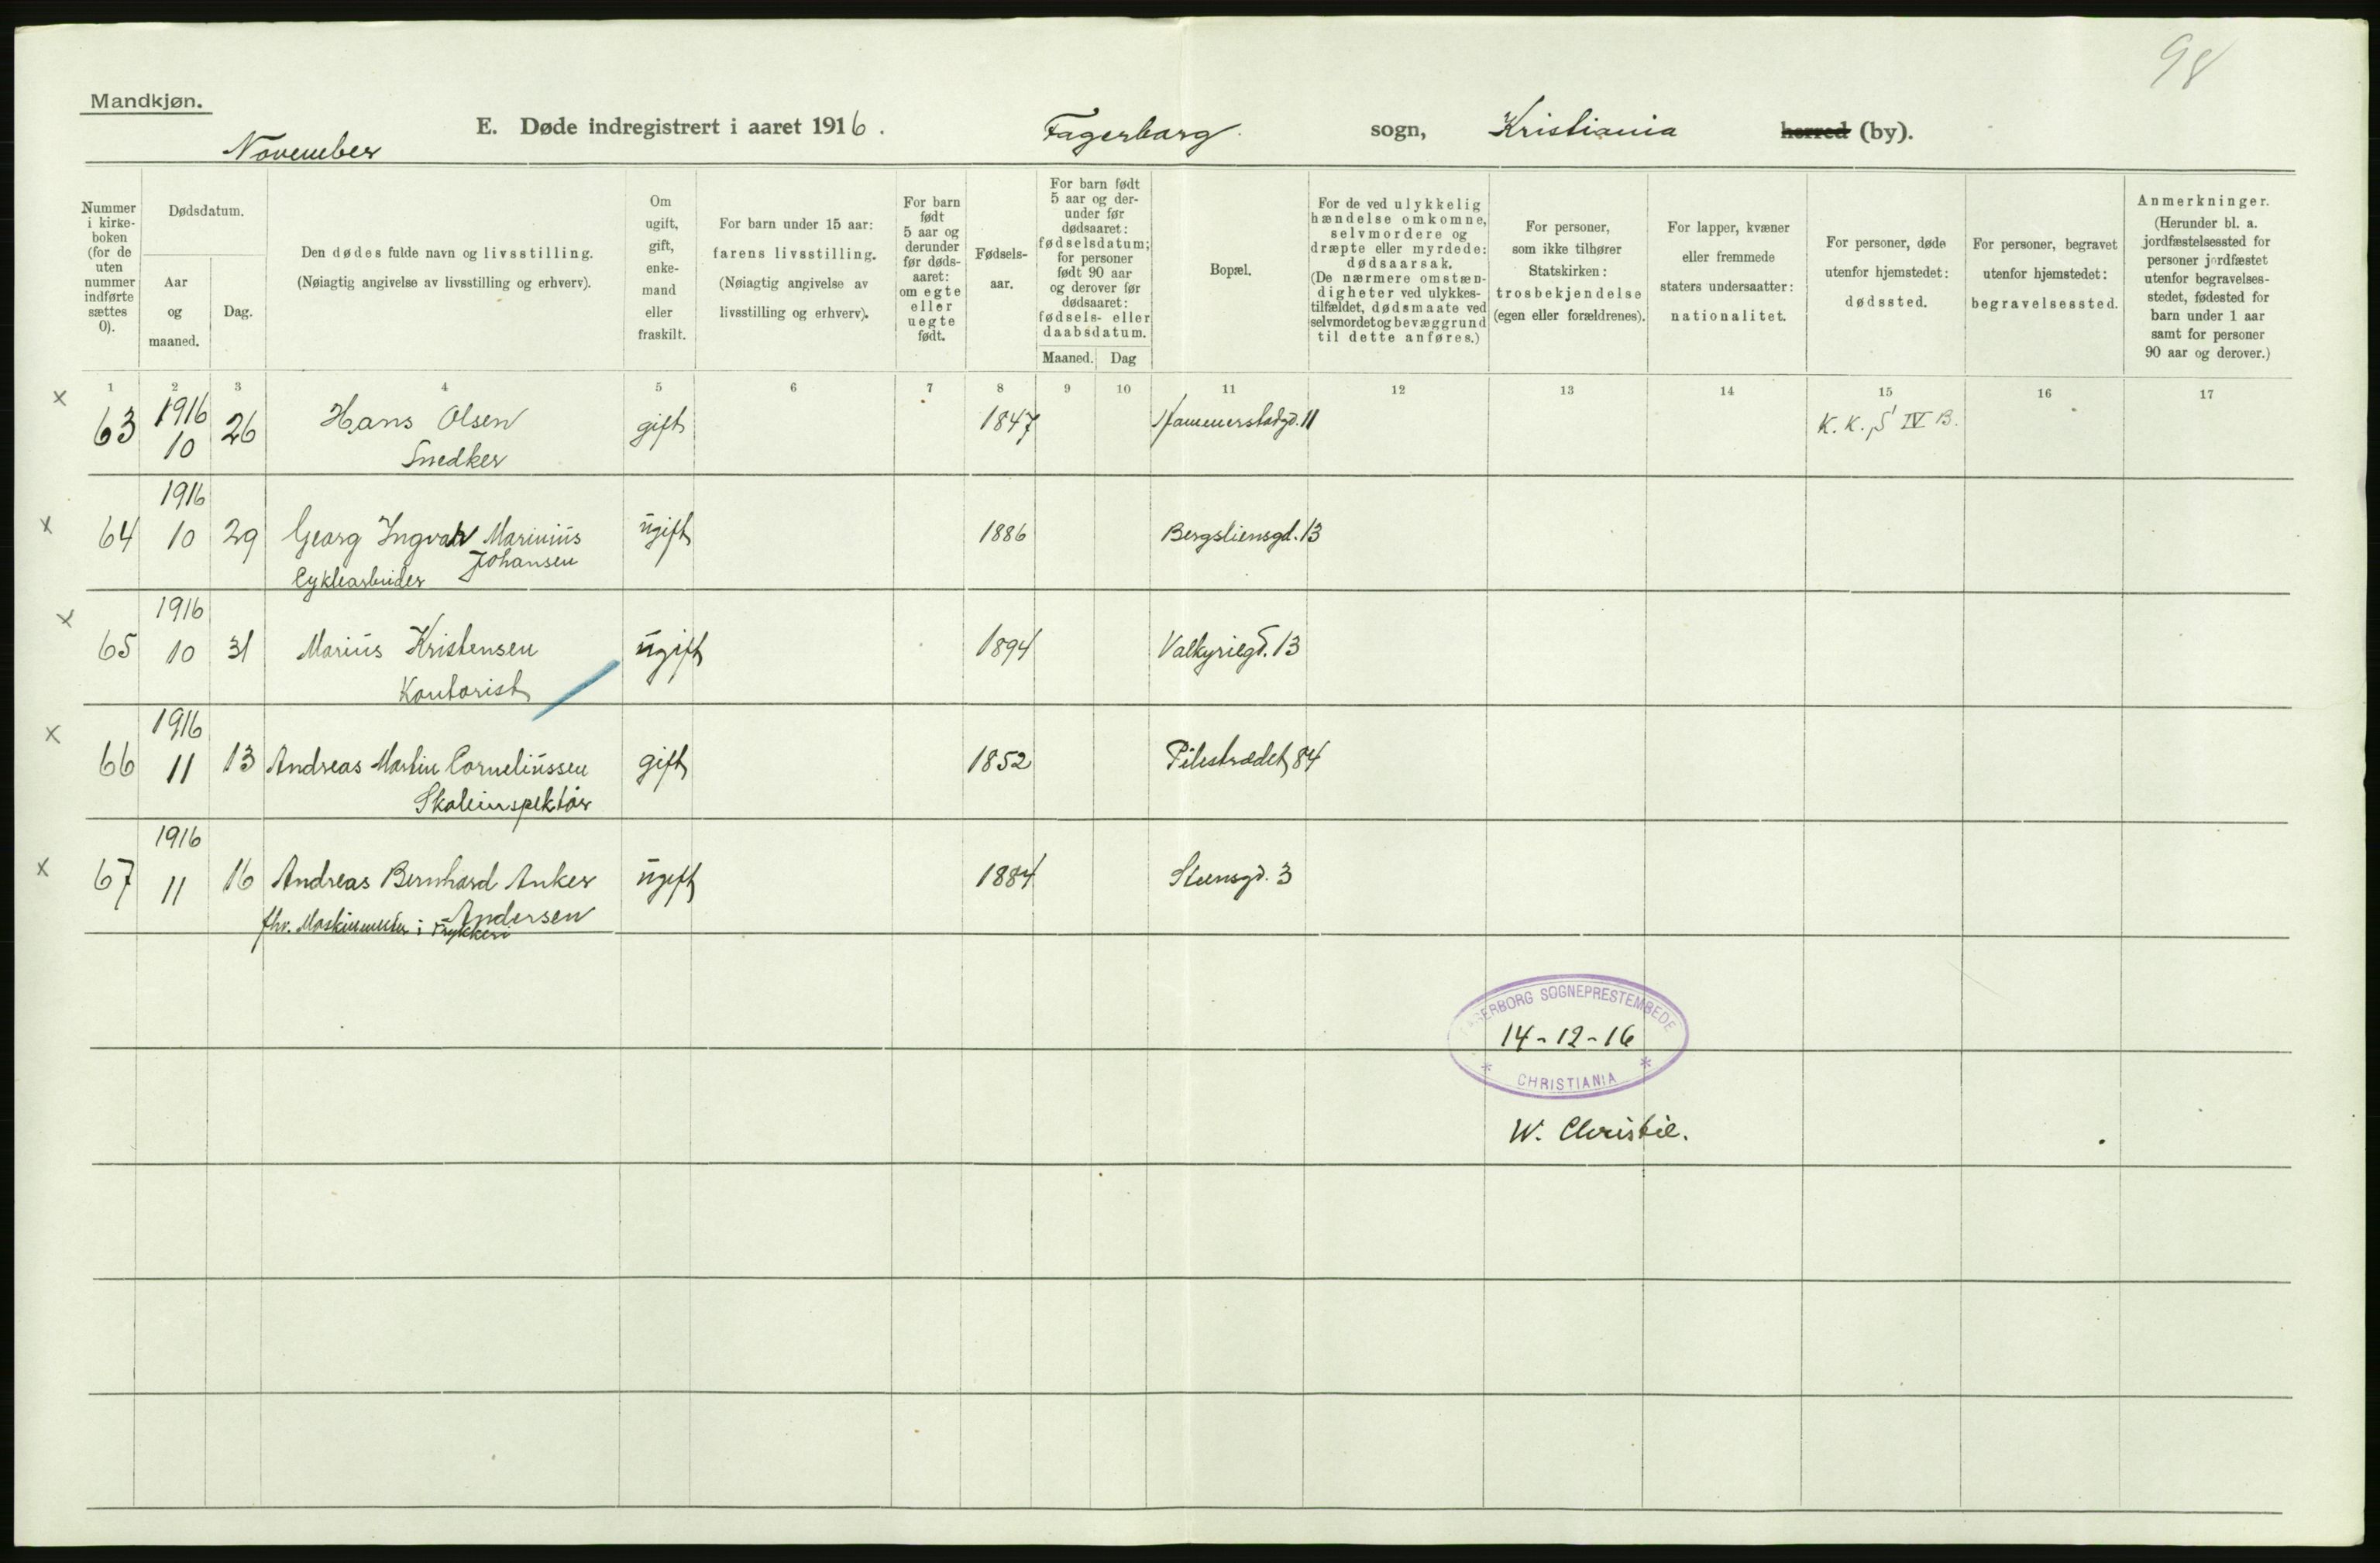 98
Mandkjøn.
E. Døde indregistrert i aaret 1916.
Fagerborg sogn, Kristiania herred (by).
November
Nummer i kirke-boken (for de uten nummer indførte sættes 0).
Dødsdatum.
Aar og maaned.
Dag.
Den dødes fulde navn og livsstilling.
(Nøiagtig angivelse av livsstilling og erhverv).
Om ugift, gift, enke-mand eller fraskilt.
For barn under 15 aar: farens livsstilling.
(Nøiagtig angivelse av livsstilling og erhverv).
For barn født 5 aar og derunder før døds-aaret: om egte eller uegte født.
Fødsels-aar.
For barn født 5 aar og der-under før dødsaaret: fødselsdatum; for personer født 90 aar og derover før dødsaaret: fødsels- eller daabsdatum.
Maaned. Dag
Bopæl.
For de ved ulykkelig hændelse omkomne, selvmordere og dræpte eller myrdede: dødsaarsak.
(De nærmere omstæn-digheter ved ulykkes-tilfældet, dødsmaate ved selvmordet og bevæggrund til dette anføres.)
For personer, som ikke tilhører Statskirken: trosbekjendelse (egen eller forældrenes).
For lapper, kvæner eller fremmede staters undersaatter: nationalitet.
For personer, døde utenfor hjemstedet: dødssted.
For personer, begravet utenfor hjemstedet: begravelsessted.
Anmerkninger.
(Herunder bl. a. jordfæstelsessted for personer jordfæstet utenfor begravelses-stedet, fødested for barn under 1 aar samt for personer 90 aar og derover.)
1 2 3 4 5 6 7 8 9 10 11 12 13 14 15 16 17
x 63 1916 10 26 Hans Olsen gift 1847 Hammerstadgd. 11 K. K. S IV B.
Snedker
x 64 1916 10 29 Georg Ingvar Marinius ugift 1886 Bergsliensgd. 13
Johansen
Cyklearbeider
x 65 1916 10 31 Marius Kristensen ugift 1894 Valkyriegd. 13
Kontorist
x 66 1916 11 13 Andreas Martin Corneliussen gift 1852 Pilestrædet 84
Skoleinspektør
x 67 1916 11 16 Andreas Bernhard Anker ugift 1884 Steensgd. 3
Andersen
fhv. Maskinmester i Trykkeri
FAGERBORG SOGNEPRESTEMBEDE
14-12-16
* CHRISTIANIA *
W. Christie.